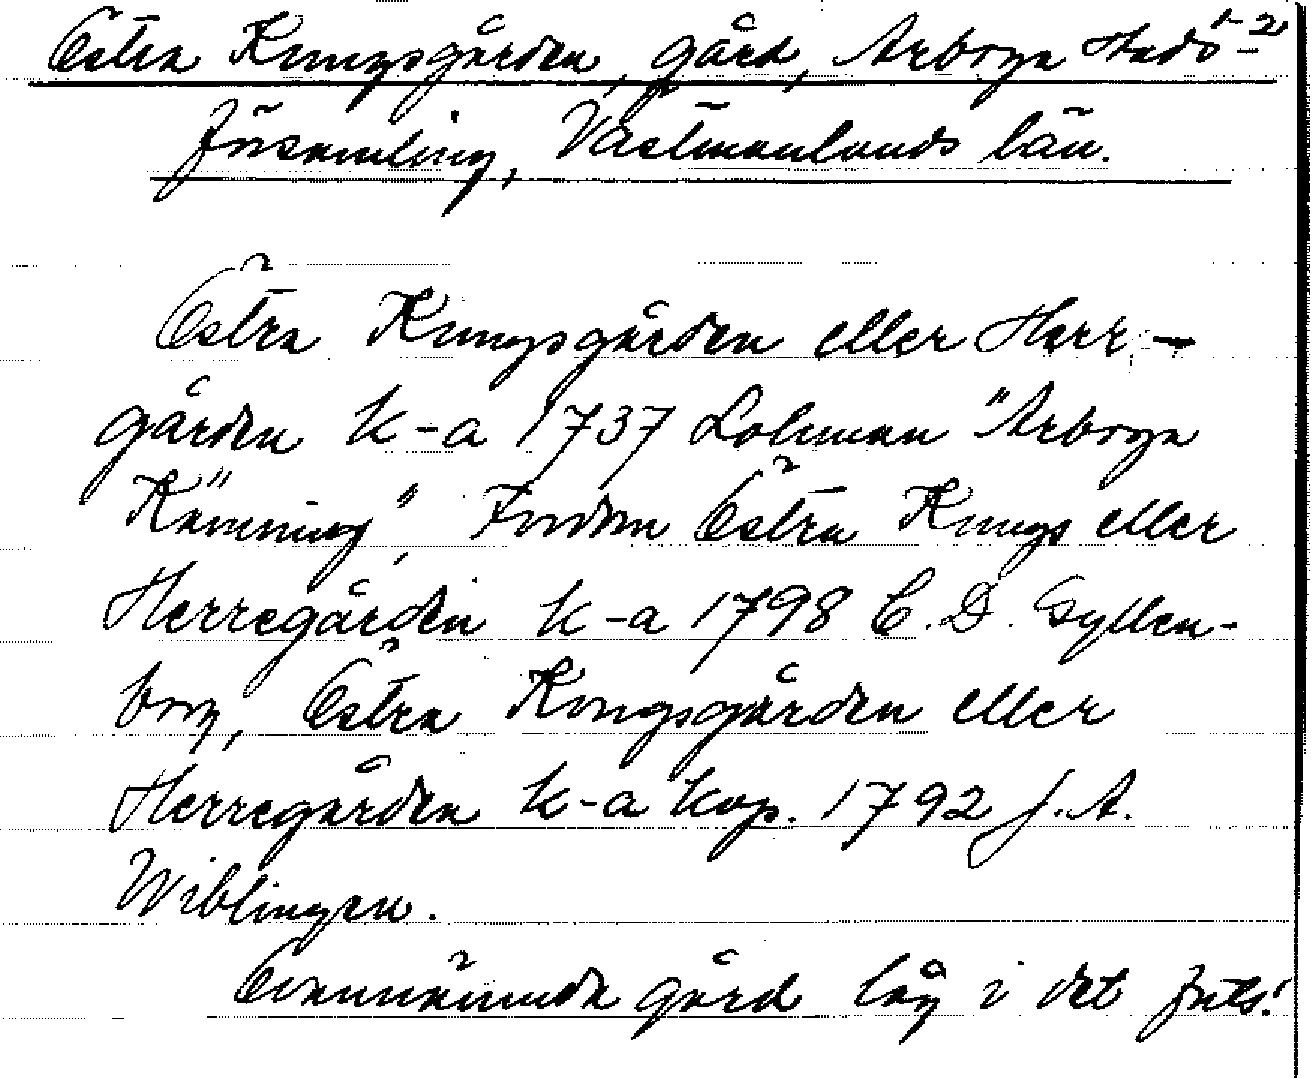 Östra Kungsgården, gård, Arboga stads- 1-2
församling, Västmanlands län.
Östra Kungsgården eller Herr-
gården k-a 1737 Lohman "Arboga
Känning", Fordom Östra Kungs eller
Herregården k-a 1798 C. D. Gyllen-
borg, Östra Kongsgården eller
Herregården k-a kop. 1792 J. A.
Wiblingen.
Ovannämnda gård låg i det forts!